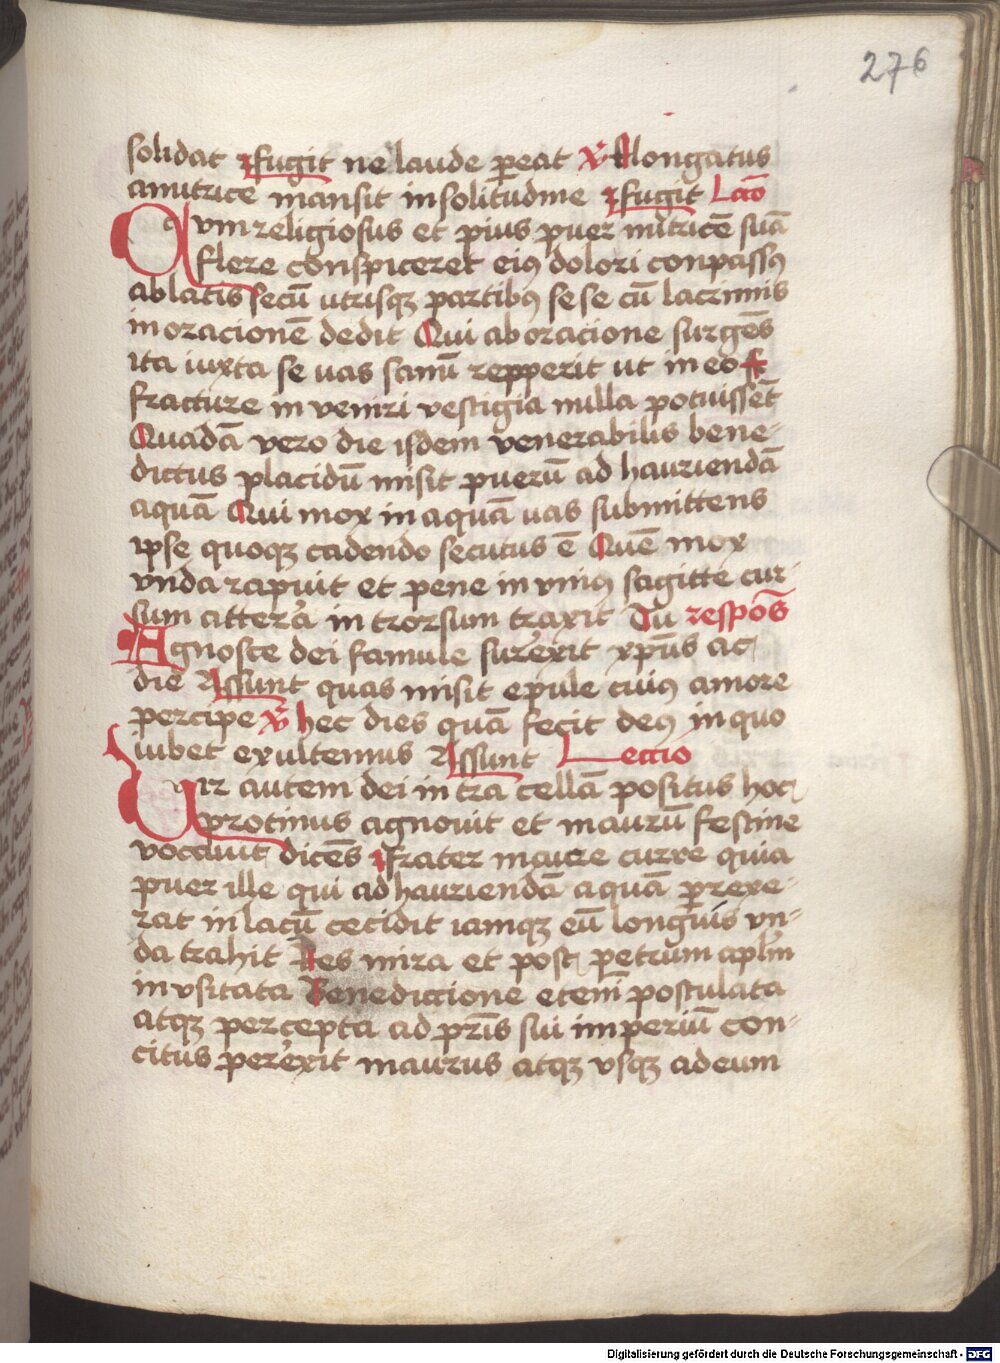 276
solidat ⁊fugit ne laude ꝑeat ℣ Elongatus
anutrice mansit insolitudine ⁊fugit Lccō
Qvm religiosus et pius puer nutricē suā
flere conspiceret eiꝰ dolori conpassꝰ
ablatis secū utrisqꝫ partibꝰ sese cū lacrimis
in oracionē dedit Qui ab oracione surgēs
ita iuxta se uas sanū repperit ut in eo
fracture in veniri vestigia nulla potuissēt
Quadā vero die isdem venerabilis bene-
dictus placidū misit puerū ad hauriendā
aquā Qui mox in aquā uas submittens
ipse quoqꝫ cadendo secutus ē Quē mox
vnda rapuit et pene in vniꝰ sagitte cur-
sum a terra in trorsum traxit Tu respōs
Agnosce dei famule surrexit xp̄us ac
die Assunt quas misit epule cuiꝰ amore
percipe ℣ hec dies quā fecit deꝰ in quo
iubet exultemus Assunt Leccio
Vir autem dei in tra cellā positus hoc
protinus agnouit et maurū festine
vocauit dicēs ⁊frater maure curre quia
puer ille qui ad hauriendā aquā ꝑrexe-
rat in lacū cecidit iamqꝫ eū longius vn-
da trahit Res mira et post petrum apl̄m
in vsitata Benediccione etenī postulata
atqꝫ percepta ad pr̄is sui imperiū con-
citus perrexit maurus atqꝫ vsqꝫ ad eum
Digitalisierung gefördert durch die Deutsche Forschungsgemeinschaft - DFG